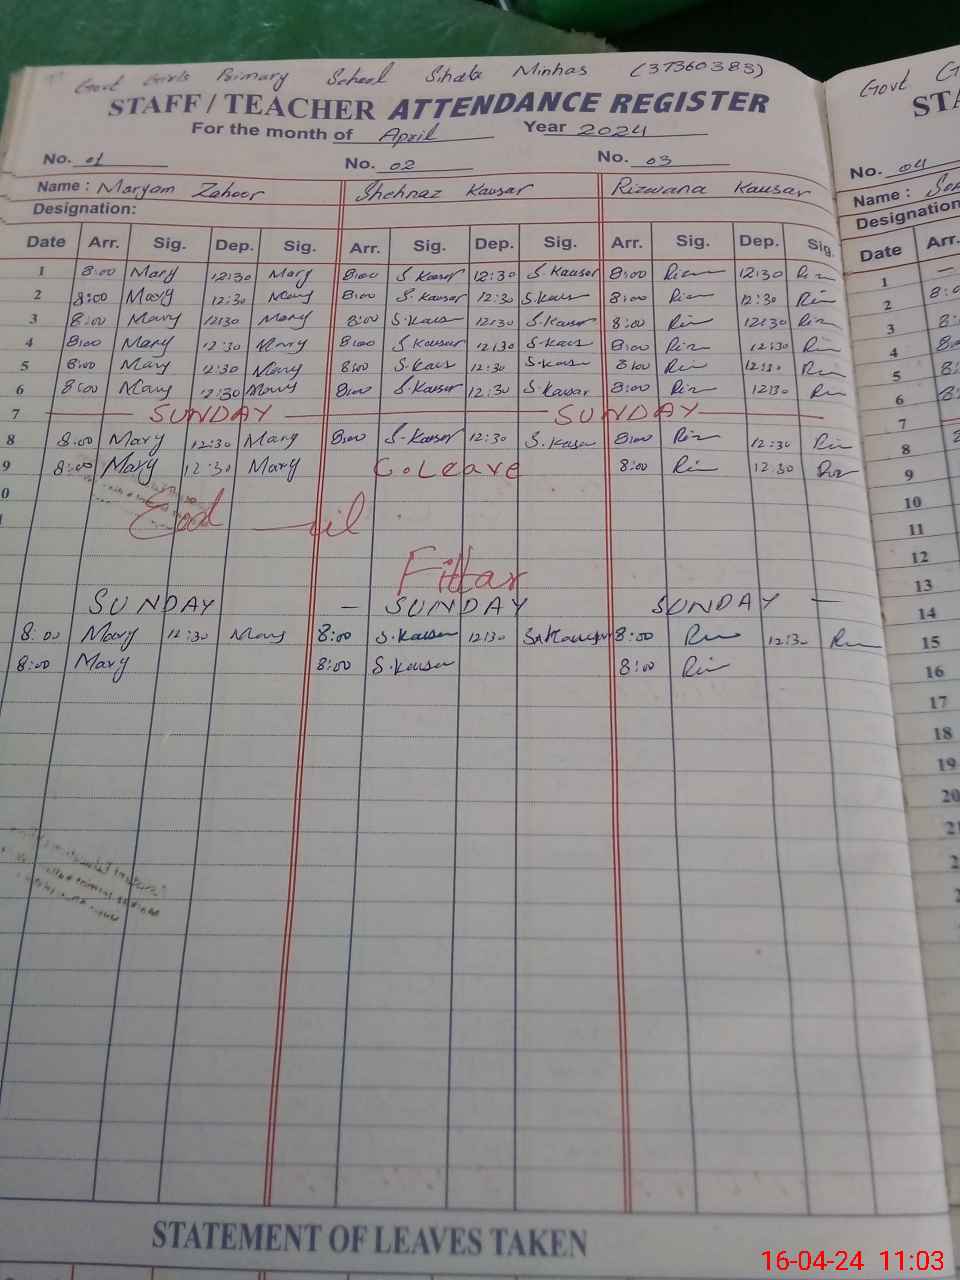 Govt Girls Primary School Shate Minhas (37360383)
STAFF / TEACHER ATTENDANCE REGISTER
For the month of April Year 2024
No. 01 No. 02 No. 03
Name : Maryam Zahoor Shehnaz Kausar Rizwana Kausar
Designation:
Date Arr. Sig. Dep. Sig. Arr. Sig. Dep. Sig. Arr. Sig. Dep. Sig.
1 8:00 Mary 12:30 Mary 8:00 S.Kauser 12:30 S.Kauser 8:00 Riz 12:30 Riz
2 8:00 Mary 12:30 Mary 8:00 S.Kauser 12:30 S.Kaus 8:00 Riz 12:30 Riz
3 8:00 Mary 12:30 Mary 8:00 S.Kaus 12:30 S.Kauser 8:00 Riz 12:30 Riz
4 8:00 Mary 12:30 Mary 8:00 S.Kauser 12:30 S.Kaus 8:00 Riz 12:30 Riz
5 8:00 Mary 12:30 Mary 8:00 S.Kaus 12:30 S.Kaus 8:00 Riz 12:30 Riz
6 8:00 Mary 12:30 Mary 8:00 S.Kauser 12:30 S.Kausar 8:00 Riz 12:30 Riz
7 SUNDAY SUNDAY
8 8:00 Mary 12:30 Mary 8:00 S.Kauser 12:30 S.Kauser 8:00 Riz 12:30 Riz
9 8:00 Mary 12:30 Mary C.Leave 8:00 Riz 12:30 Riz
0
Eod _ ul
Fittar
SUNDAY - SUNDAY SUNDAY -
8:00 Mary 12:30 Mary 8:00 S.Kauser 12:30 8:00 Riz 12:30 Riz
8:00 Mary 8:00 S.Kauser 8:00 Riz
STATEMENT OF LEAVES TAKEN
Govt
STA
No. 04
Name :
Designation
Date Arr.
1 -
2 8:0
3 8:
4 8:
5 8:
6 8:
7
8
9
10
11
12
13
14
15
16
17
18
19
20
21
16-04-24 11:03